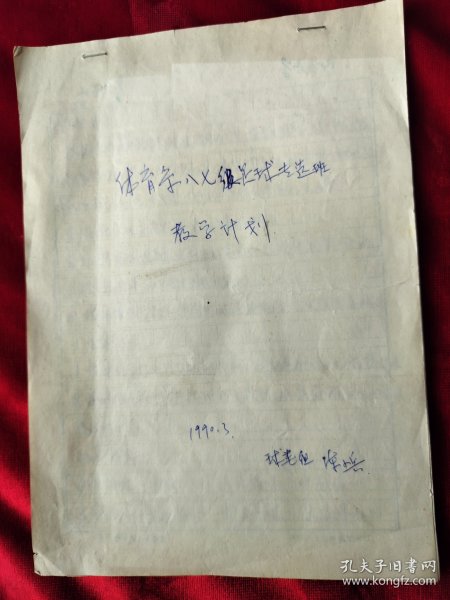 体育系八七级足球专选班
教学计划
1990.3.
球类组
孔夫子旧书网
www.kongfz.com